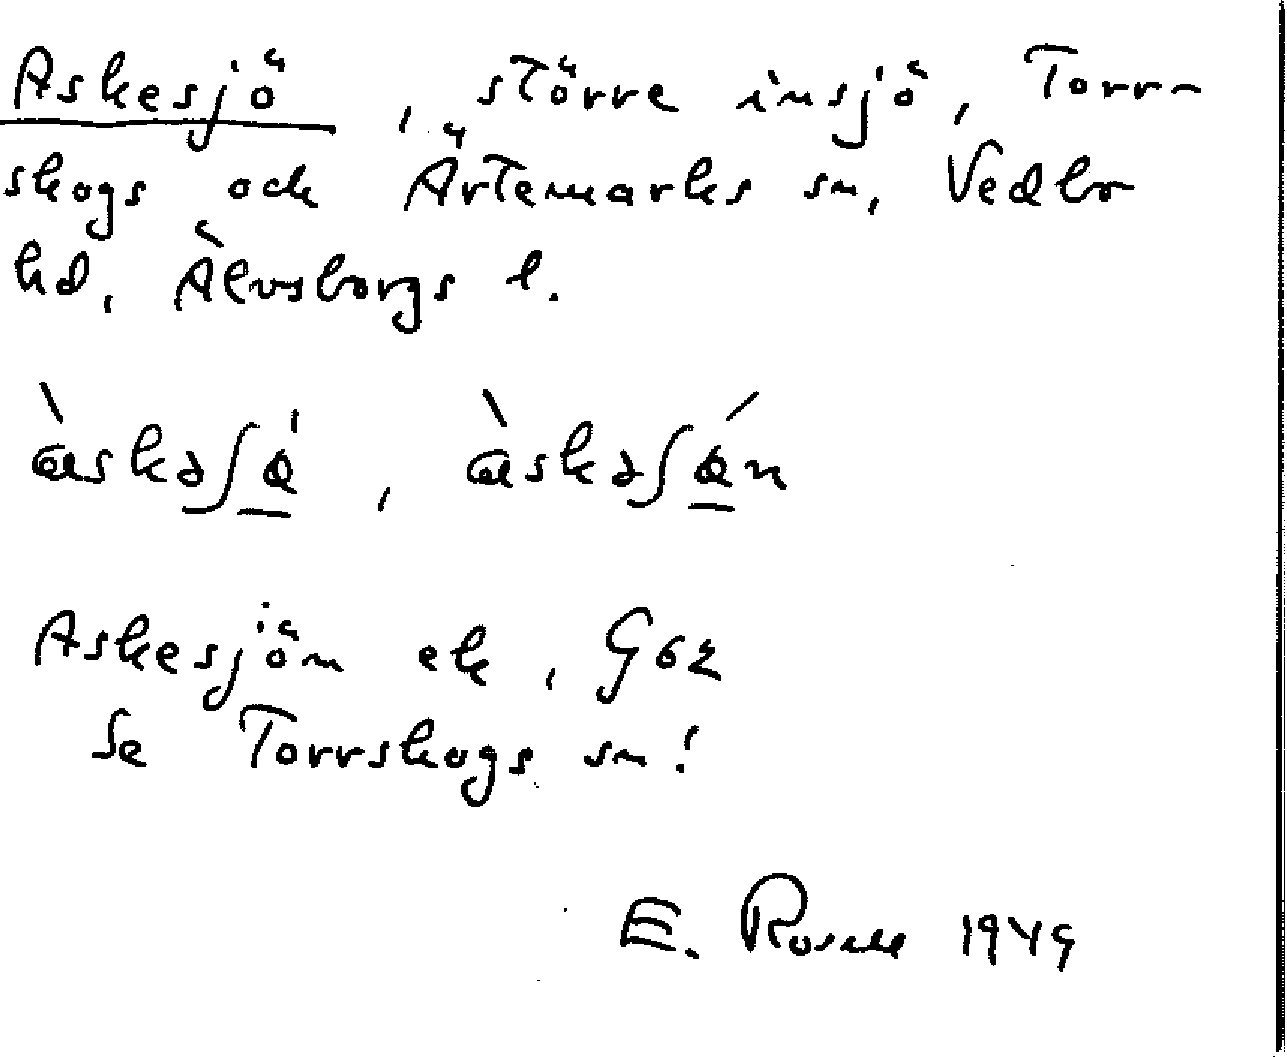 Askesjö, större insjö, Torr-
skogs och Ärtemarks sn, Vedbo
hd, Älvsborgs l.
Askesjön ek, G62
Se Torrskogs sn!
E. Rosell 1949